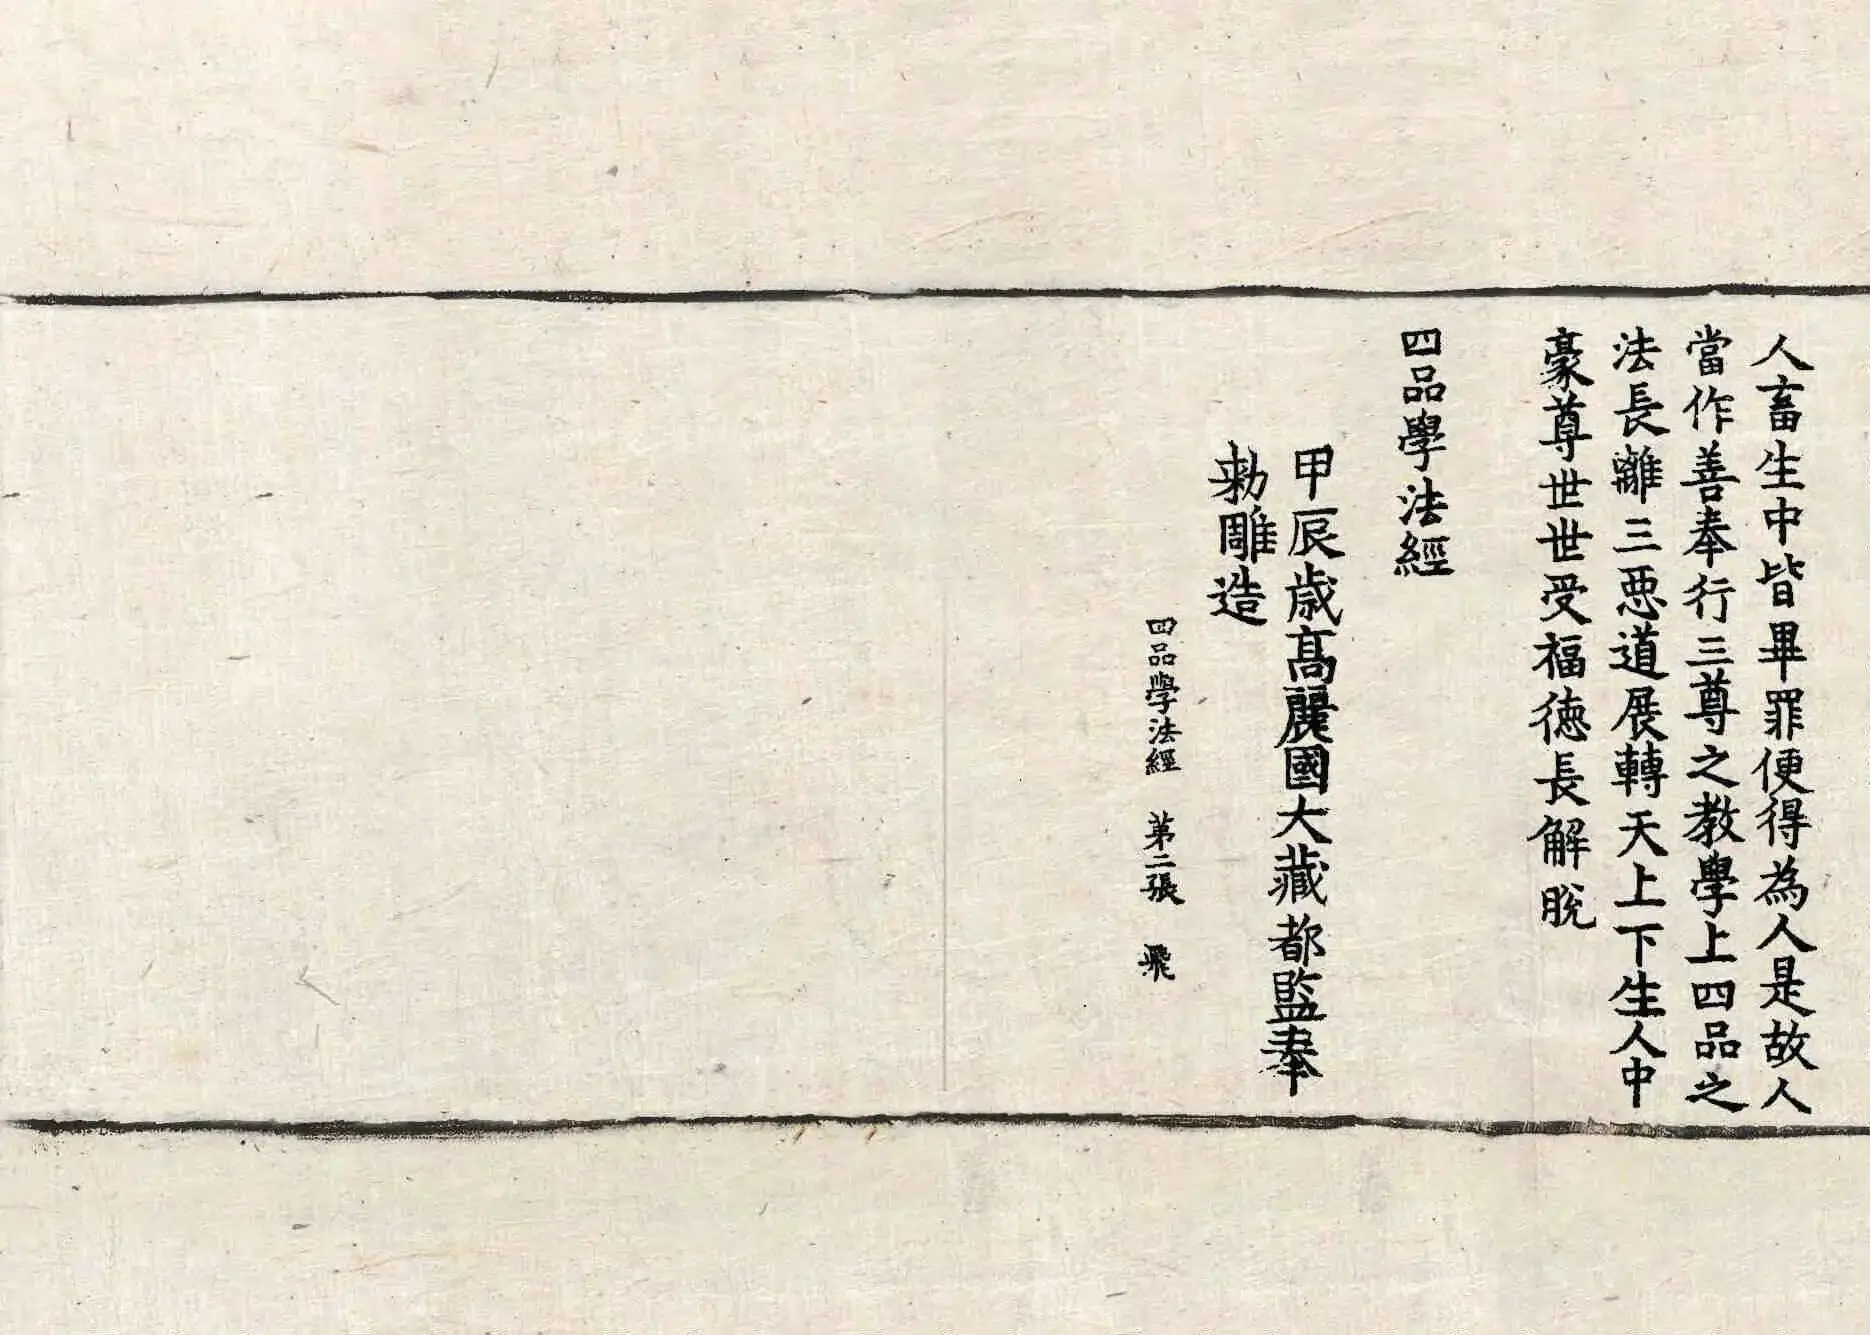 人畜生中皆畢罪便得為人是故人
當作善奉行三尊之教學上四品之
法長離三惡道展轉天上下生人中
豪尊世世受福徳長解脫
四品學法經
甲辰歲高麗國大藏都監奉
勑雕造
四品學法經 第二張 飛